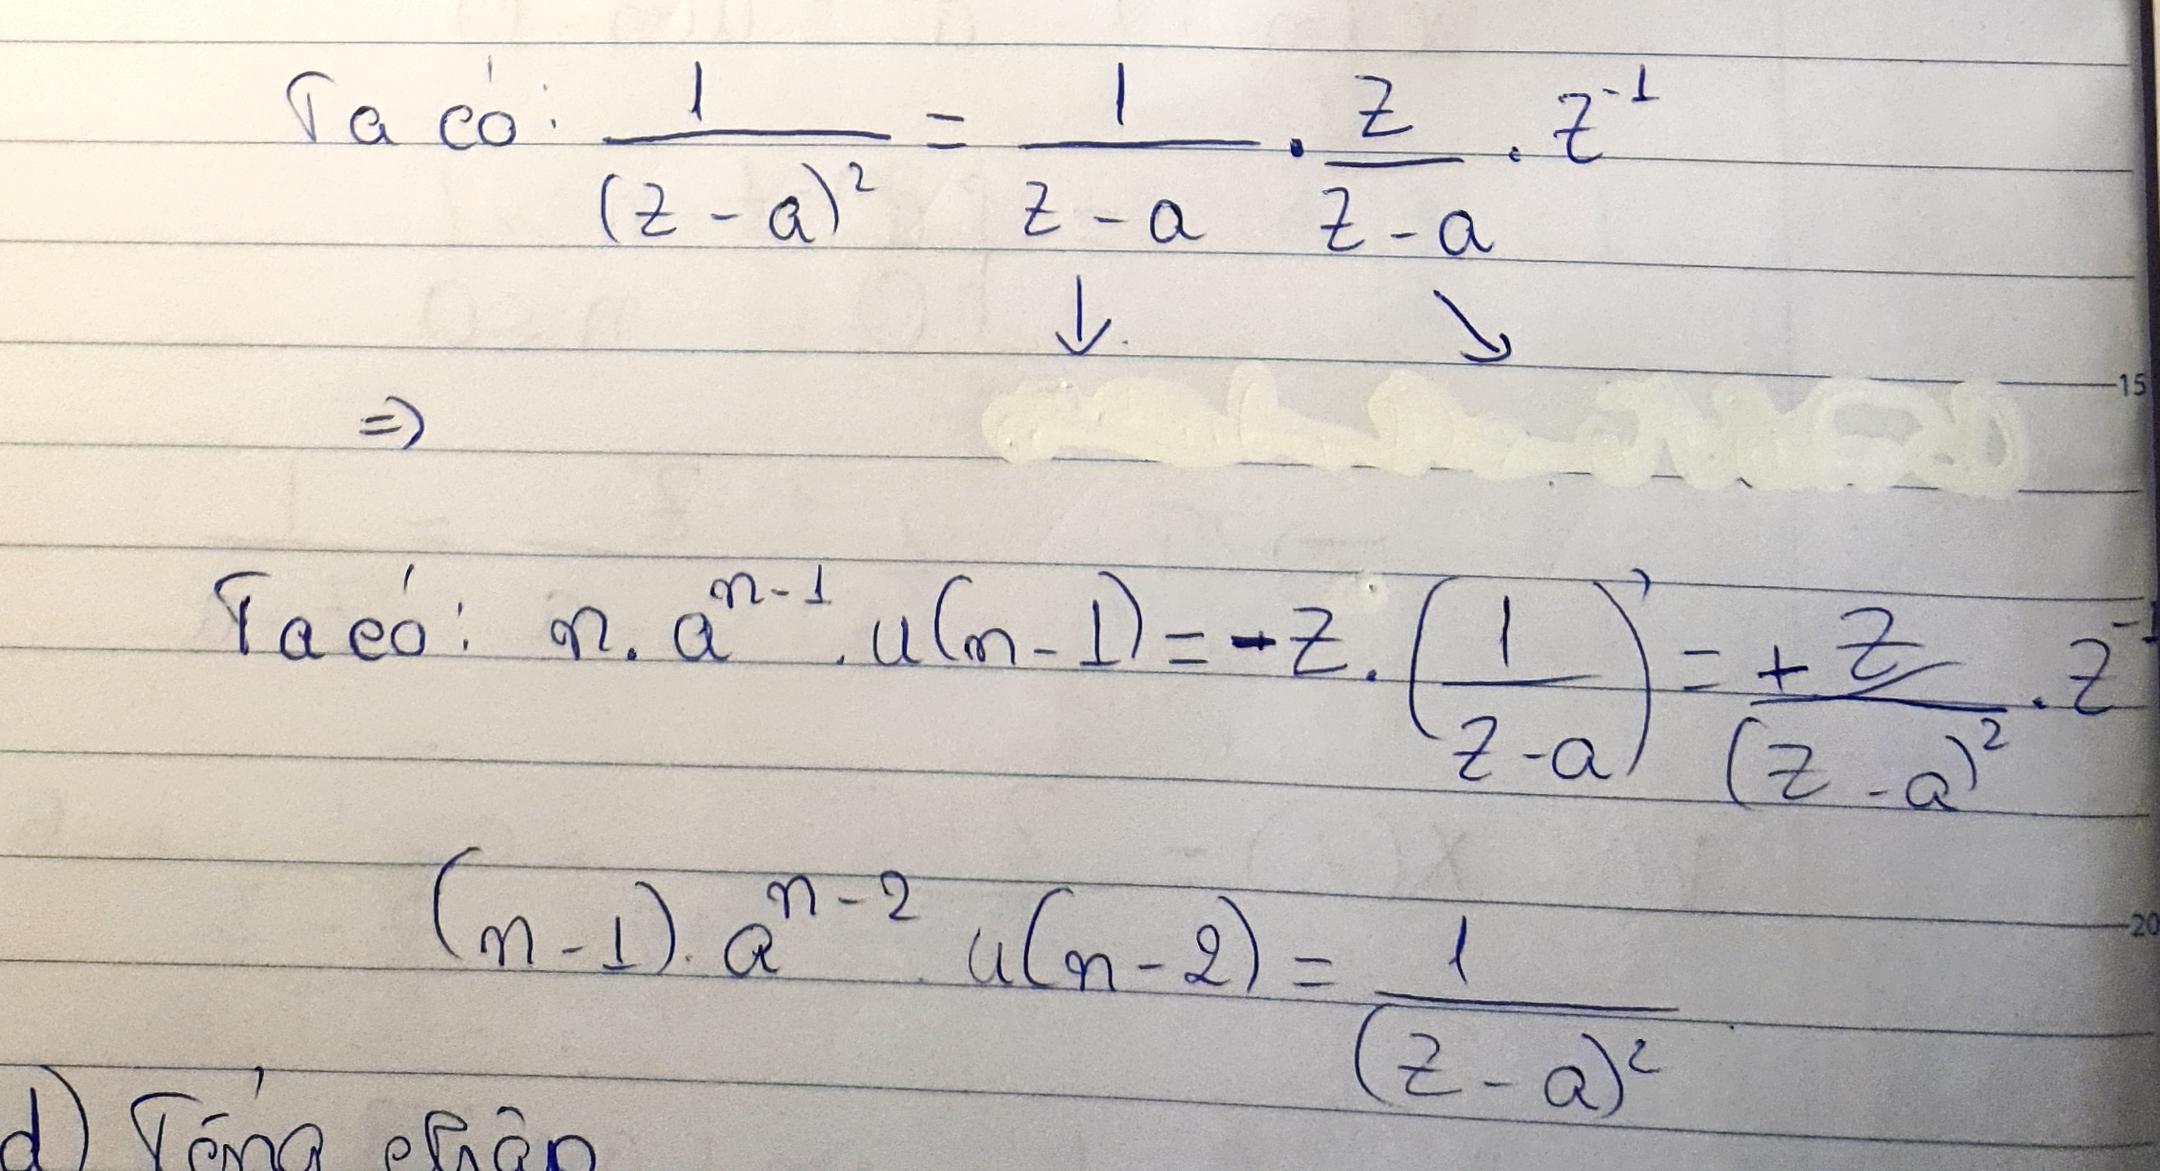 Ta có: 1/(z - a)² = 1/(z - a) . z/(z - a) . z⁻¹
↓ ↘
15
⇒
Ta có: n. aⁿ⁻¹ . u(n - 1) = - z . (1/(z - a))' = + z/(z - a)² . z⁻¹
(n - 1). aⁿ⁻² u(n - 2) = 1/(z - a)²
20
d) Tổng chập